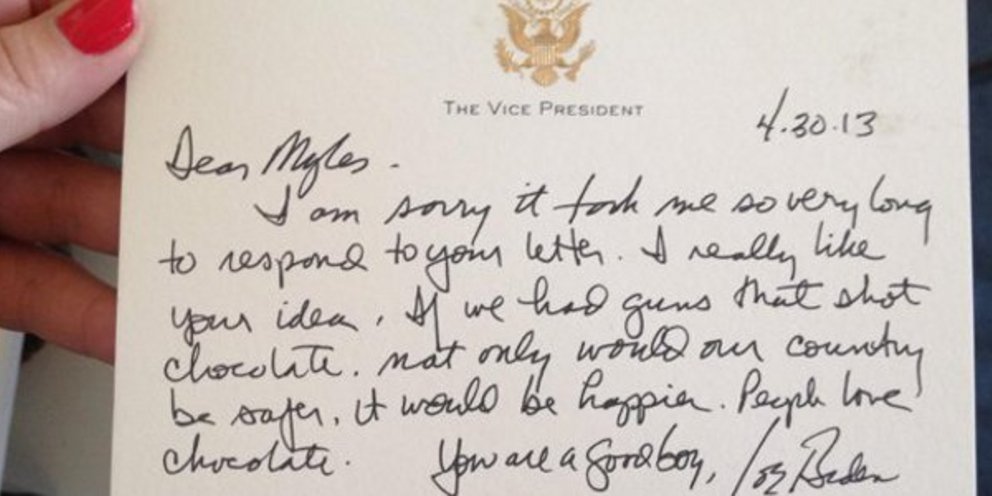 THE VICE PRESIDENT
4.30.13
Dear Myles.
I am sorry it took me so very long
to respond to your letter. I really like
your idea. If we had guns that shot
chocolate, not only would our country
be safer, it would be happier. People love
chocolate. You are a good boy, Joe Biden